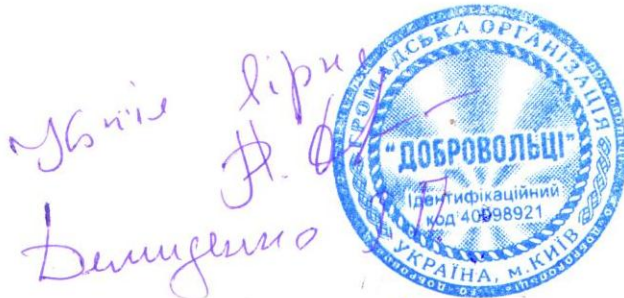 Копія вірна
Демиденко
ГРОМАДСЬКА ОРГАНІЗАЦІЯ
"ДОБРОВОЛЬЦІ"
Ідентифікаційний
код 40998921
УКРАЇНА, м.КИЇВ